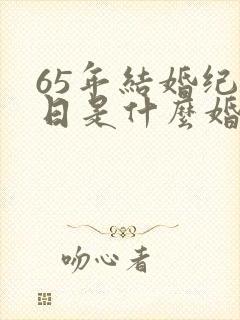 65年結婚纪
日是什麼婚
吻心者